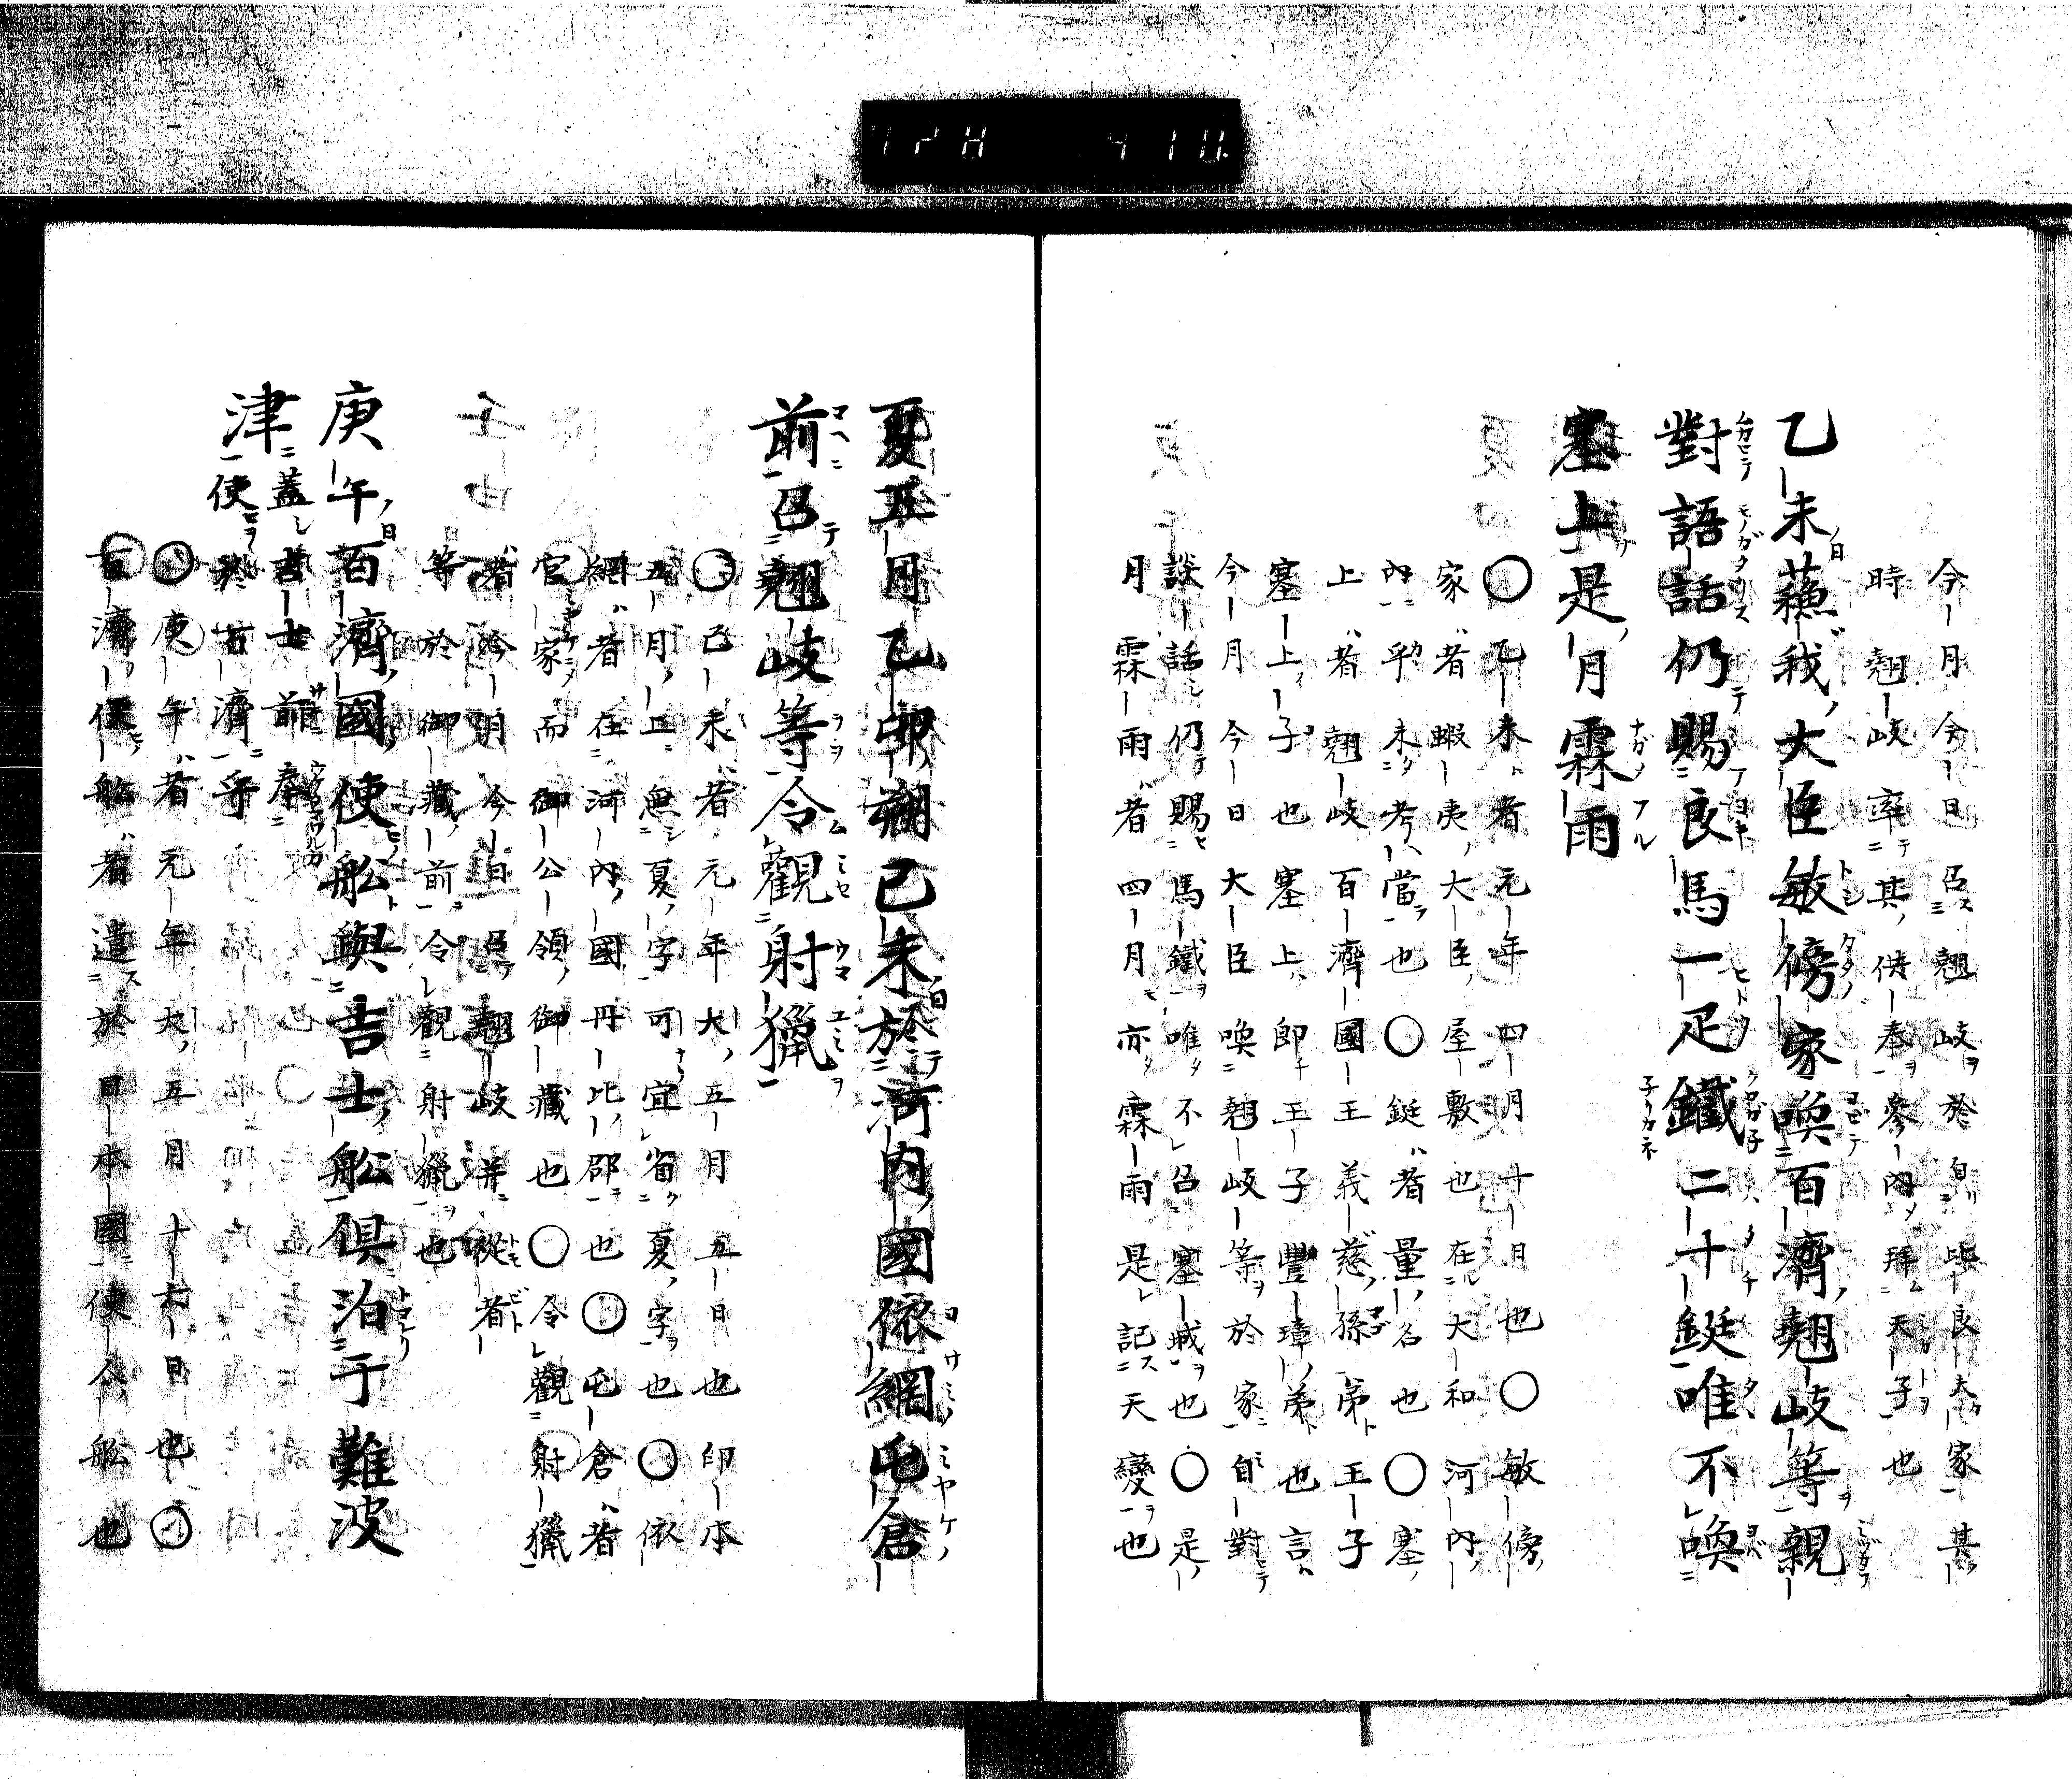 今月今日召翹岐於自畔良大家其
時翹岐率其供奉參內拜天子也
乙未蘓我大臣敏傍家喚百濟翹岐等親
對語話仍賜良馬一疋鐵二十鋌唯不喚
塞上是月霖雨
〇乙未者元年四月十日也〇敏傍
家者蝦夷大臣屋敷也在大和河內
內乎未考當也〇鋌者量名也〇塞
上者翹岐百濟國王義慈孫弟王子
塞上子也塞上即王子豐璋弟也言
今月今日大臣喚翹岐等於家自對
談話仍賜馬鐵唯不召塞城也〇是
月霖雨者四月亦霖雨是記天變也
夏五月乙卯朔己未於河內國依網屯倉
前召翹岐等令觀射獵
〇己未者元年大五月五日也印本
五月上無夏字可宜省夏字也〇依
網者在河內國丹比郡也〇屯倉者
官家而御公領御藏也〇令觀射獵
者今月今日召翹岐并從者
等於御藏前令觀射獵也
庚午百濟國使舩與吉士舩俱泊于難波
津蓋吉士前奉
使於百濟乎
〇庚午者元年大五月十六日也〇
百濟使舩者遣於日本國使人舩也